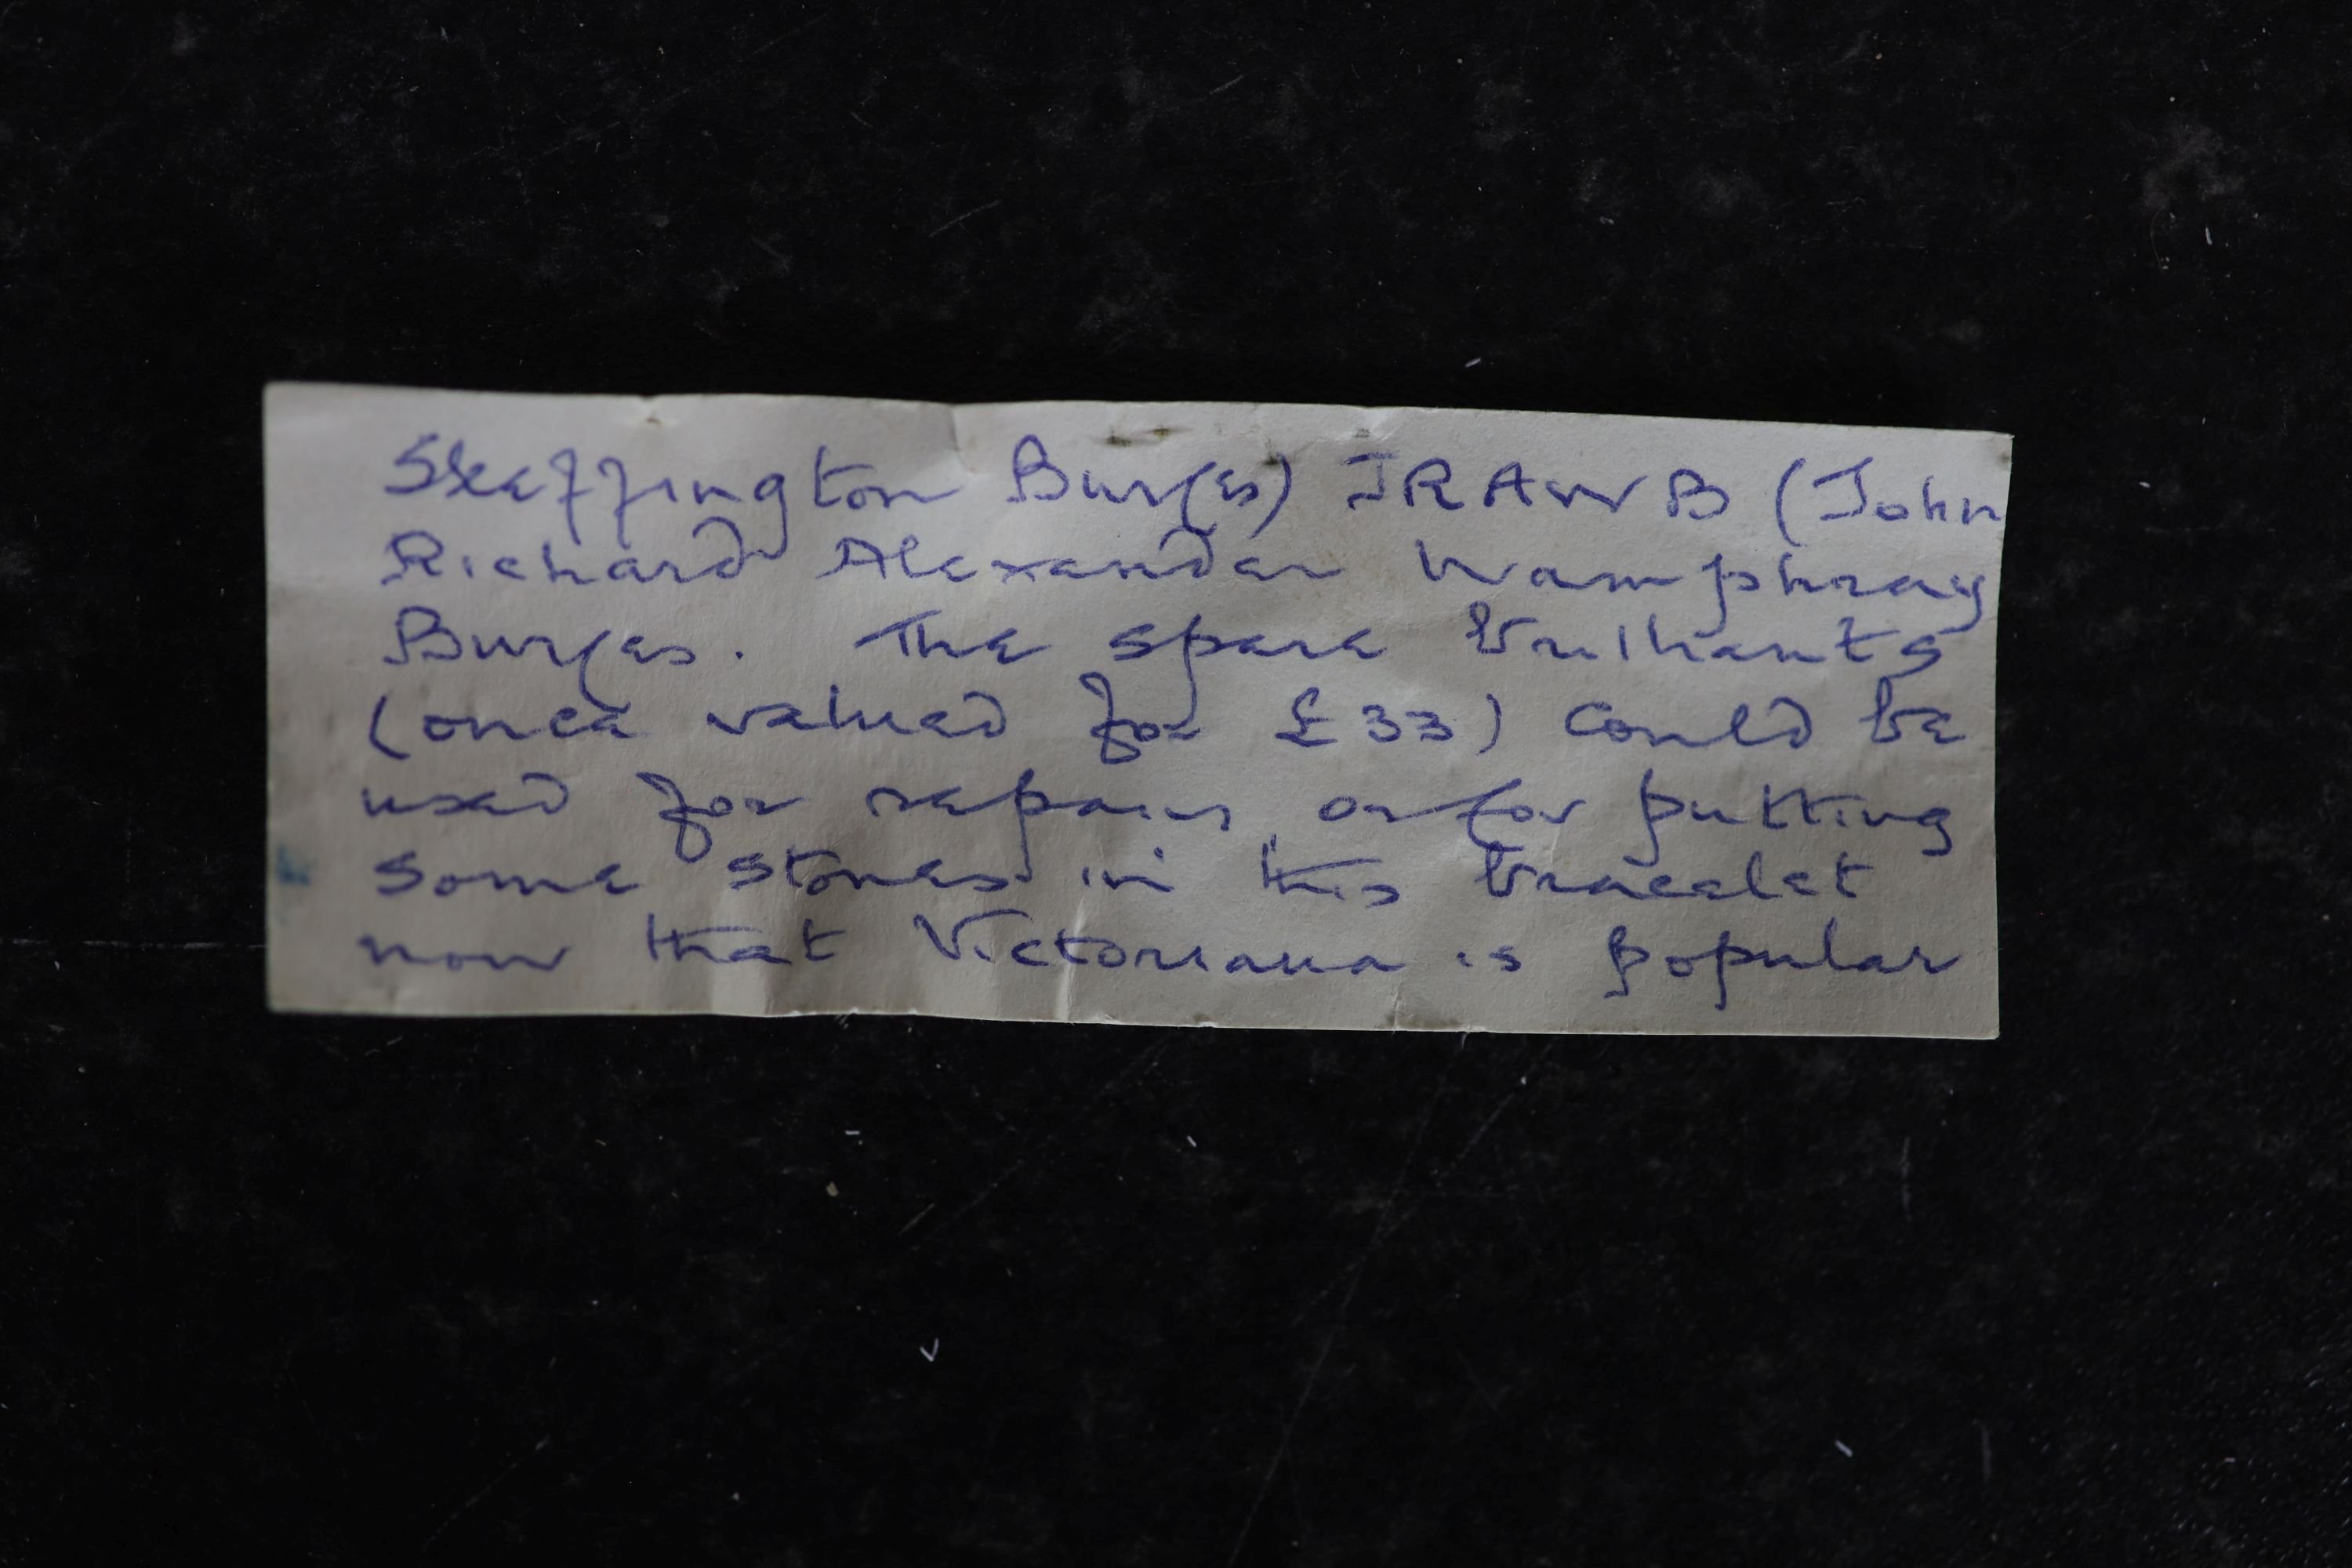 Skeffington Burges) JRAWB (John
Richard Alexander Wamphray
Burges. The spare brilliants
(once valued for £33) could be
used for repairs, or for putting
some stones in this bracelet
now that Victoriana is popular